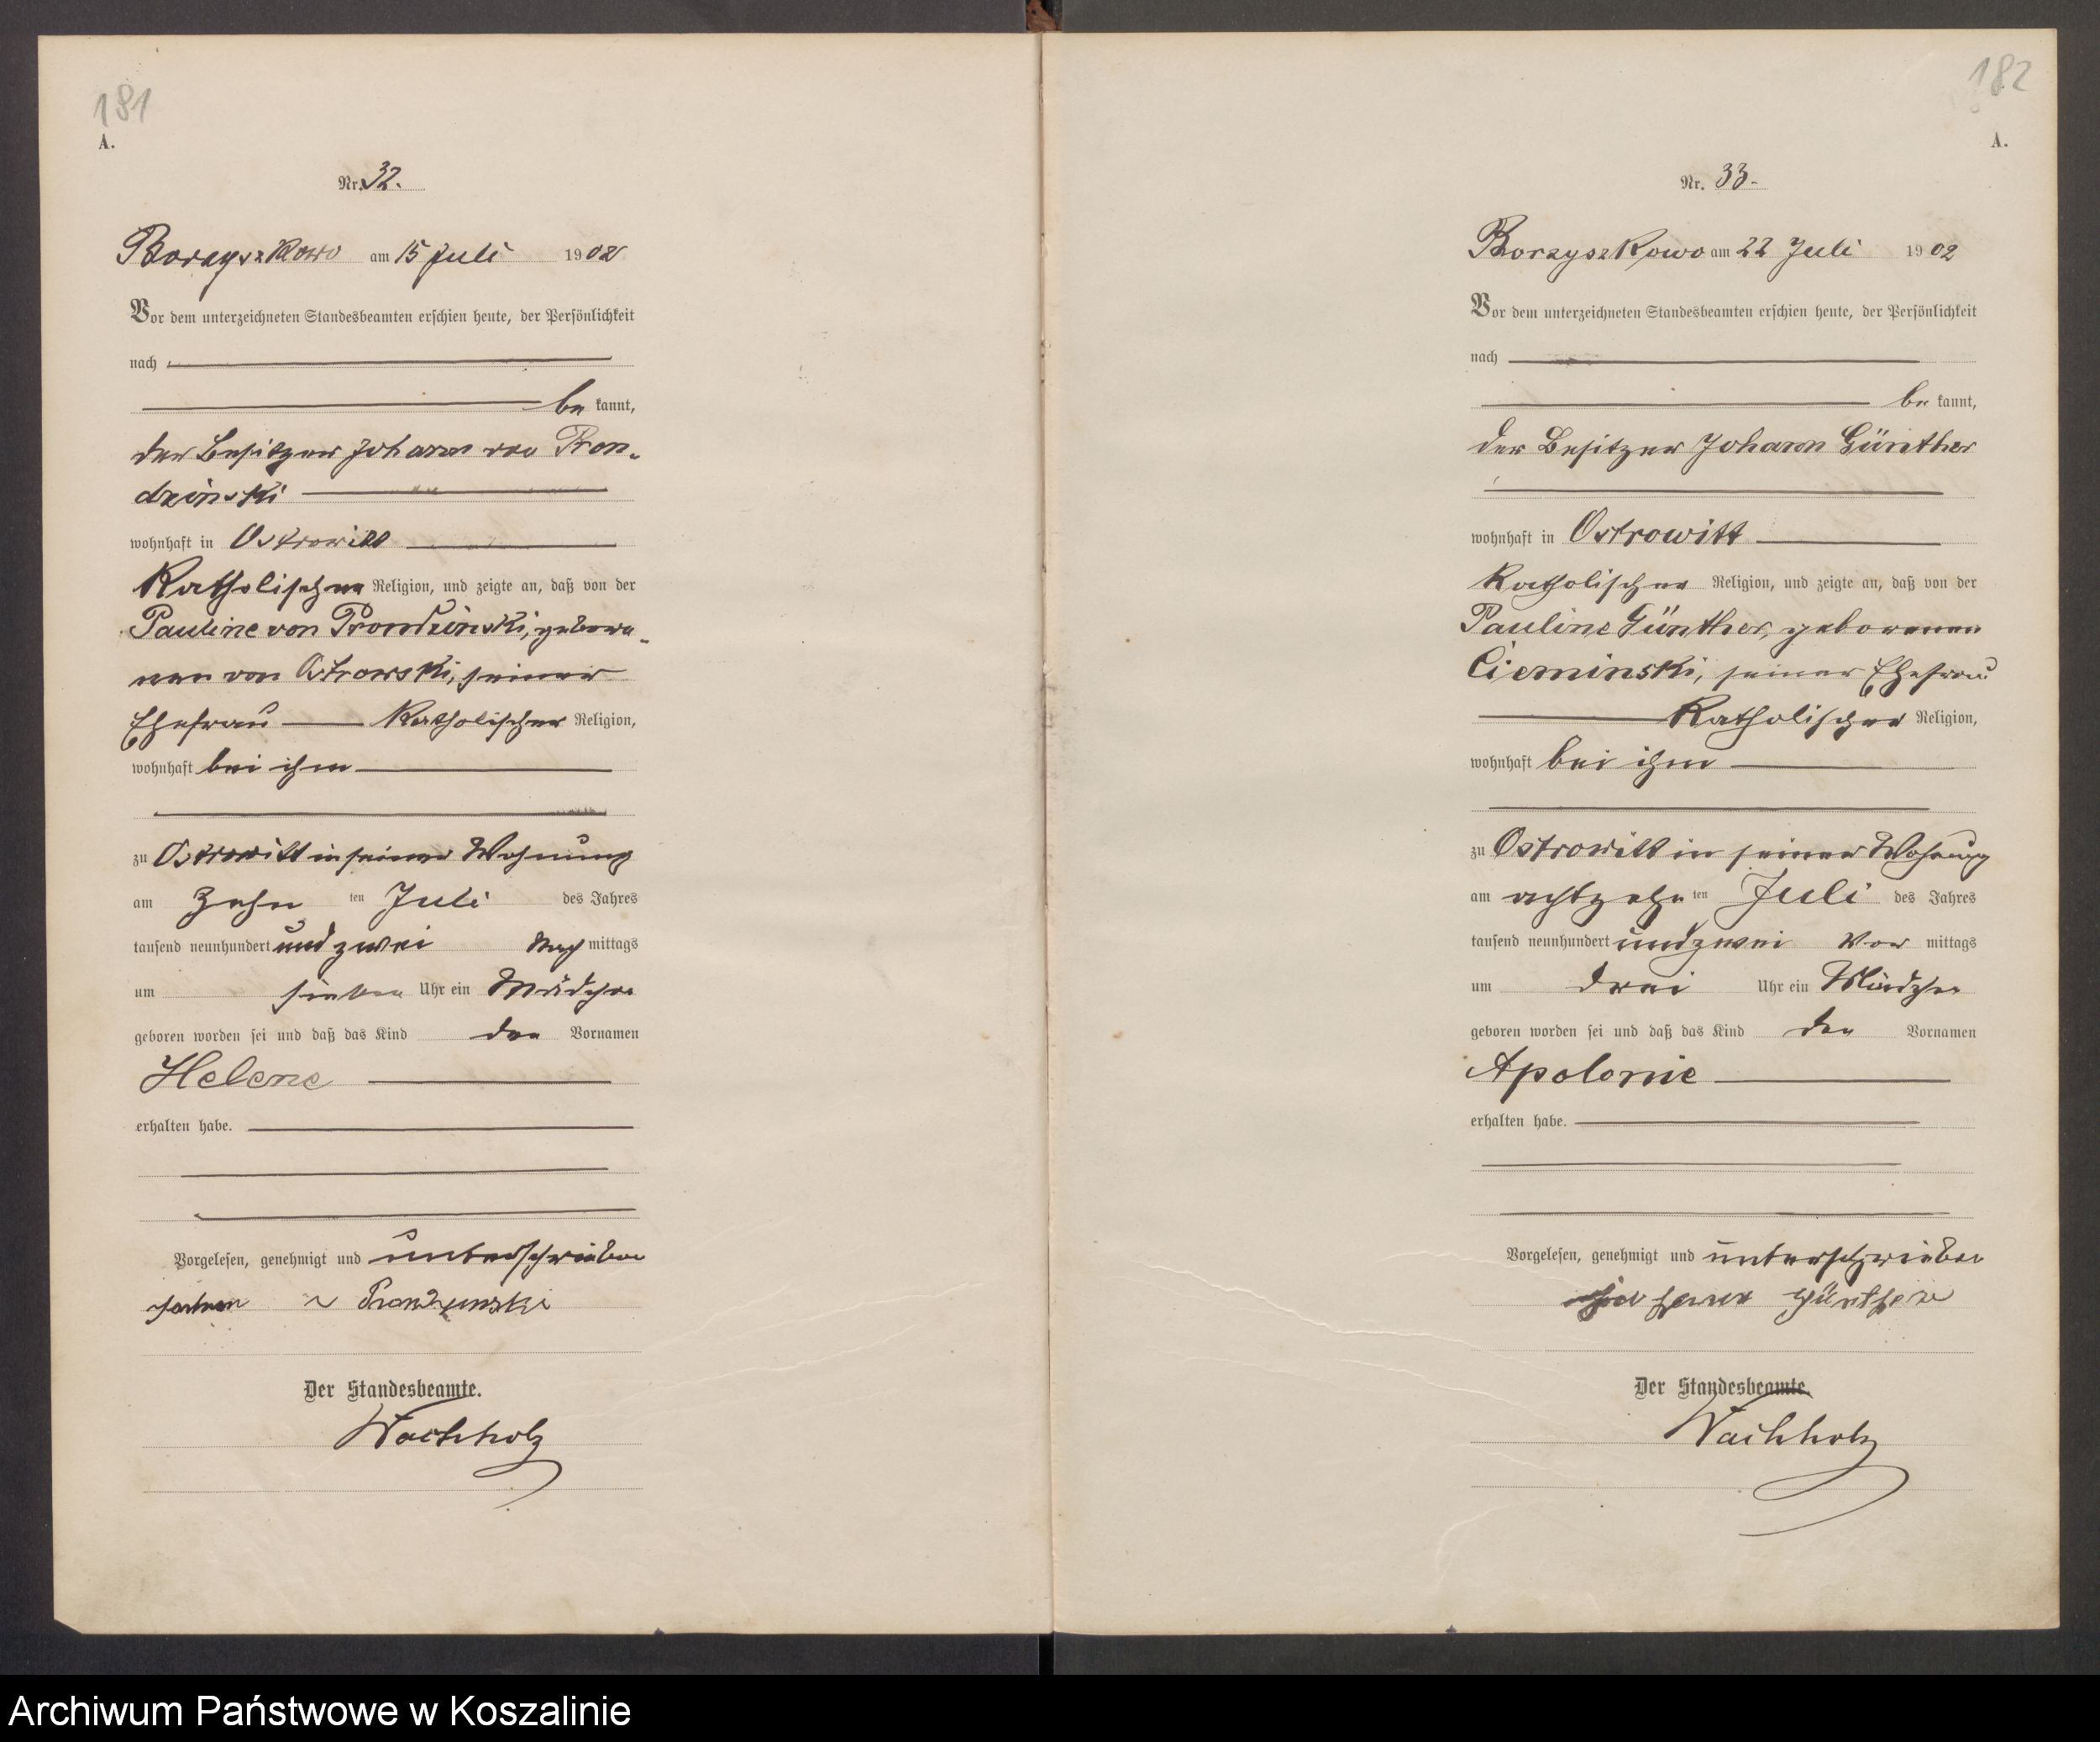 181
A.
Nr. 32.
Borzyszkowo am 15 Juli 1902
Vor dem unterzeichneten Standesbeamten erschien heute, der Persönlichkeit
nach
be kannt,
der Besitzer Johann von Pron-
dzinski
wohnhaft in Ostrowitt
Katholischer Religion, und zeigte an, daß von der
Pauline von Prondzinski, gebore-
nen von Ostrowski, seiner
Ehefrau Katholischer Religion,
wohnhaft bei ihm
zu Ostrowitt in seiner Wohnung
am zehn ten Juli des Jahres
tausend neunhundert und zwei Nach mittags
um sieben Uhr ein Mädchen
geboren worden sei und daß das Kind den Vornamen
Helene
erhalten habe.
Vorgelesen, genehmigt und unterschrieben
Prondzinski
Der Standesbeamte.
Wachholz
182
A.
Nr. 33.
Borzyszkowo am 22 Juli 1902
Vor dem unterzeichneten Standesbeamten erschien heute, der Persönlichkeit
nach
be kannt,
der Besitzer Johann Günther
wohnhaft in Ostrowitt
Katholischer Religion, und zeigte an, daß von der
Pauline Günther, geborenen
Cieminski, seiner Ehefrau
Katholischer Religion,
wohnhaft bei ihm
zu Ostrowitt in seiner Wohnung
am achtzehn ten Juli des Jahres
tausend neunhundert und zwei Vor mittags
um drei Uhr ein Mädchen
geboren worden sei und daß das Kind den Vornamen
Apolonie
erhalten habe.
Vorgelesen, genehmigt und unterschrieben
Günther
Der Standesbeamte.
Wachholz
Archiwum Państwowe w Koszalinie